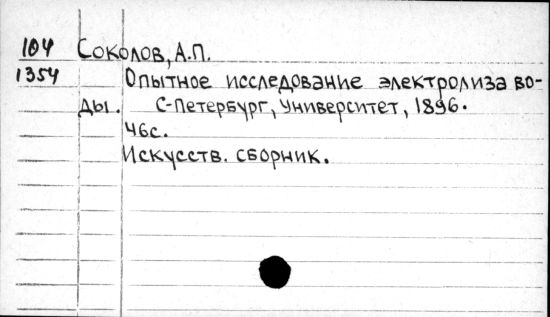 104 Соколов, А.П.
1354 Опытное исследование электролиза во-
ды. С-Петербург, Университет, 1896.
46с.
Искусств. сборник.